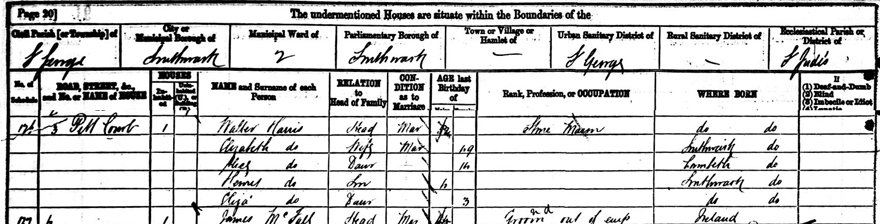 Page 30] The undermentioned Houses are situate within the Boundaries of the
Civil Parish [or Township] of City or Municipal Borough of Municipal Ward of Parliamentary Borough of Town or Village or Hamlet of Urban Sanitary District of Rural Sanitary District of Ecclesiastical Parish or District of
St George Southwark 2 Southwark — St George — St Judes
No. of Schedule ROAD, STREET, &c., and No. or NAME of HOUSE HOUSES NAME and Surname of each Person RELATION to Head of Family CON-DITION as to Marriage AGE last Birthday of Rank, Profession, or OCCUPATION WHERE BORN If (1) Deaf-and-Dumb (2) Blind (3) Imbecile or Idiot
5 Pitt Court 1 Walter Harris Head Mar Stone Mason do do
Elizabeth do Wife Mar Southwark do
do Daur Lambeth do
do Son Southwark do
Eliza do Daur 3 do do
1 James Head Mar Groom out of Ireland